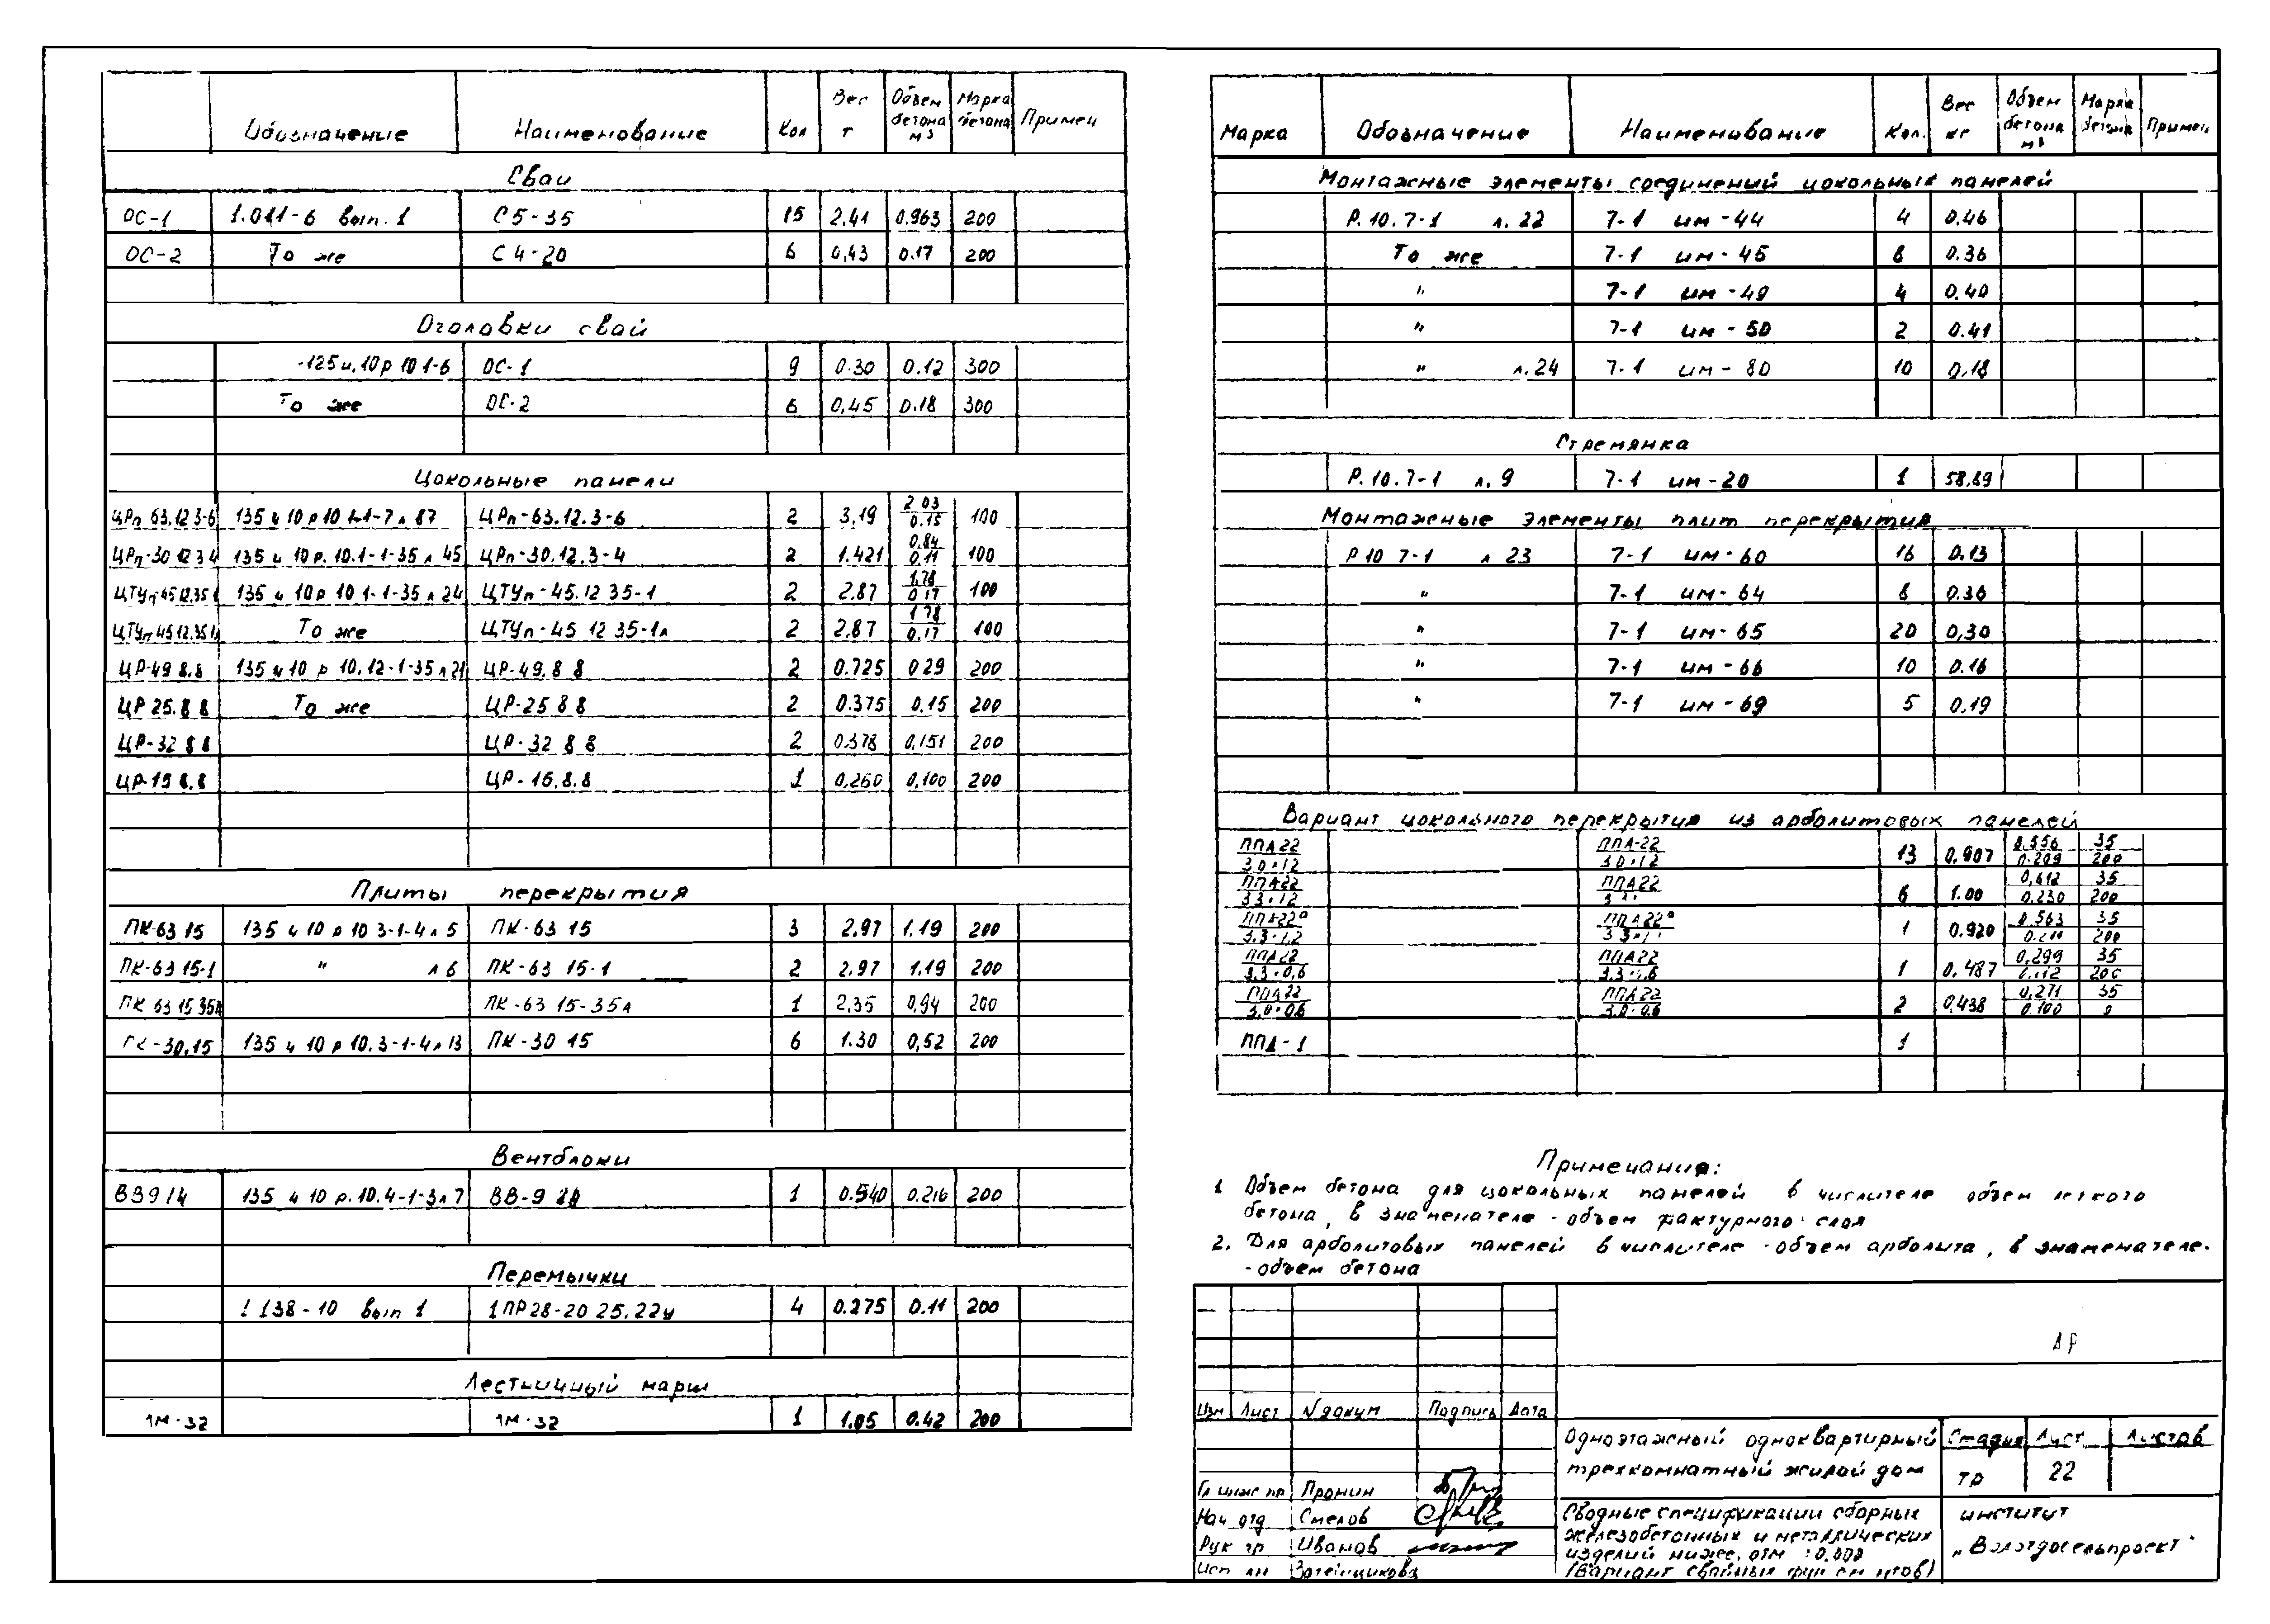 Обозначение Наименование Кол Вес т Объем бетона м³ Марка бетона Примеч
Сваи
ОС-1 1.011-6 вып. 1 С5-35 15 2,41 0.963 200
ОС-2 То же С 4-20 6 0,43 0.17 200
Оголовки свай
-125 и, 10 р 10 1-6 ОС-1 9 0.30 0.12 300
То же ОС-2 6 0,45 0.18 300
Цокольные панели
ЦРп 63.12 3-6 135 и 10 р 10 1-1-7 л 87 ЦРп-63.12.3-6 2 3,19 2 03/0.15 100
ЦРп-30 12 3 4 135 и 10 р. 10.1-1-35 л 45 ЦРп-30.12.3-4 2 1.421 0.84/0.11 100
ЦТУп-45 12.35 1 135 и 10 р 10 1-1-35 л 24 ЦТУп-45.12 35-1 2 2.87 1.78/0 17 100
ЦТУп 45 12.35 1л То же ЦТУп-45 12 35-1л 2 2.87 1 78/0.17 100
ЦР-49 8.8 135 и 10 р 10.12-1-35 л 21 ЦР-49.8 8 2 0.725 0 29 200
ЦР 25.8 8 То же ЦР-25 8 8 2 0.375 0.15 200
ЦР-32 8 8 ЦР-32 8 8 2 0.378 0,151 200
ЦР-15 8.8 ЦР-16.8.8 1 0,260 0,100 200
Плиты перекрытия
ПК-63 15 135 и 10 р 10 3-1-4 л 5 ПК-63 15 3 2.97 1.19 200
ПК-63 15-1 " л 6 ПК-63 15-1 2 2,97 1.19 200
ПК 63 15 35л ПК-63 15-35л 1 2.35 0,94 200
ПК-30,15 135 и 10 р 10.3-1-4 л 13 ПК-30 15 6 1.30 0,52 200
Вентблоки
ВВ9 14 135 и 10 р. 10.4-1-3 л 7 ВВ-9 1 0.540 0.216 200
Перемычки
1 138-10 вып 1 1ПР28-20 25.22у 4 0.275 0.11 200
Лестничный марш
1М-32 1М-32 1 1.05 0.42 200
Марка Обозначение Наименование Кол. Вес кг Объем бетона м³ Марка бетона Примеч
Монтажные элементы соединений цокольных панелей
Р. 10. 7-1 л. 22 7-1 им-44 4 0.46
То же 7-1 им-45 8 0.36
" 7-1 им-49 4 0,40
" 7-1 им-50 2 0.41
" л. 24 7-1 им-80 10 0,18
Стремянка
Р. 10. 7-1 л. 9 7-1 им-20 1 58,69
Монтажные элементы плит перекрытия
Р 10 7-1 л 23 7-1 им-60 16 0.13
" 7-1 им-64 8 0.36
" 7-1 им-65 20 0,30
" 7-1 им-66 10 0.16
" 7-1 им-69 5 0,19
Вариант цокольного перекрытия из арболитовых панелей
ППА 22/3.0×12 ППА-22/3.0×12 13 0.907 0.556/0.209 35/200
ППА22/3.3×12 ППА22 6 1.00 0,612/0.230 35/200
ППА-22ᵃ/3.3×1,2 ППА22ᵃ 1 0.920 0.563/0.211 35/200
ППА22/3.3×0,6 ППА22/3.3×0.6 1 0.487 0,299/0.112 35/200
ППА22/3.0×0.6 ППА22/3.0×0.6 2 0,438 0,271/0.100 35
ППА-1 1
Примечания:
1 Объем бетона для цокольных панелей в числителе объем легкого
бетона, в знаменателе - объем фактурного слоя
2. Для арболитовых панелей в числителе - объем арболита, в знаменателе-
- объем бетона
АР
Изм Лист N докум Подпись Дата
Одноэтажный одноквартирный
трехкомнатный жилой дом
Стадия Лист Листов
ТР 22
Гл инж пр Пронин
Нач отд Смелов
Рук гр Иванов
Исп Затейщикова
Сводные спецификации сборных
железобетонных и металлических
изделий ниже, отм ±0.000
(Вариант свайных фундаментов)
институт
„Вологдасельпроект"